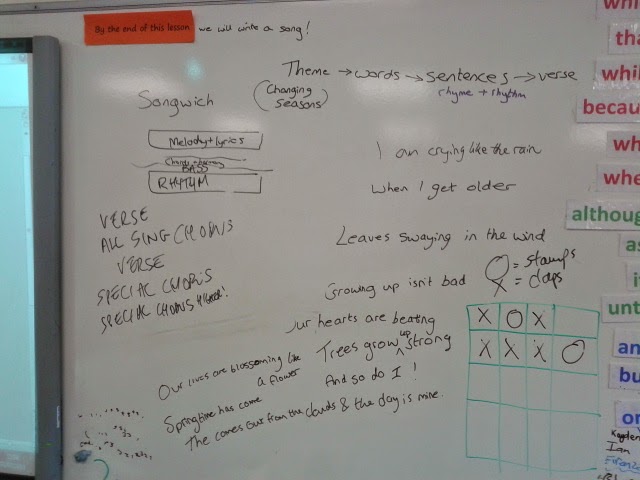 By the end of this lesson we will write a song!
Theme → words → sentences → verse
(Changing seasons)
rhyme + rhythm
Songwich
Melody + lyrics
BASS
RHYTHM
VERSE
ALL SING CHORUS
VERSE
SPECIAL CHORUS
SPECIAL CHORUS
I am crying like the rain
When I get older
Leaves swaying in the wind
Growing up isn't bad
O = stamps
X = claps
ur hearts are beating
Trees grow up strong
And so do I !
Our lives are blossoming like
a flower
Springtime has come
The comes out from the clouds & the day is mine.
X O X
X X X O
whi
tha
whil
becau
wh
whe
althoug
as
i
unt
an
bu
or
Kayden
Ian